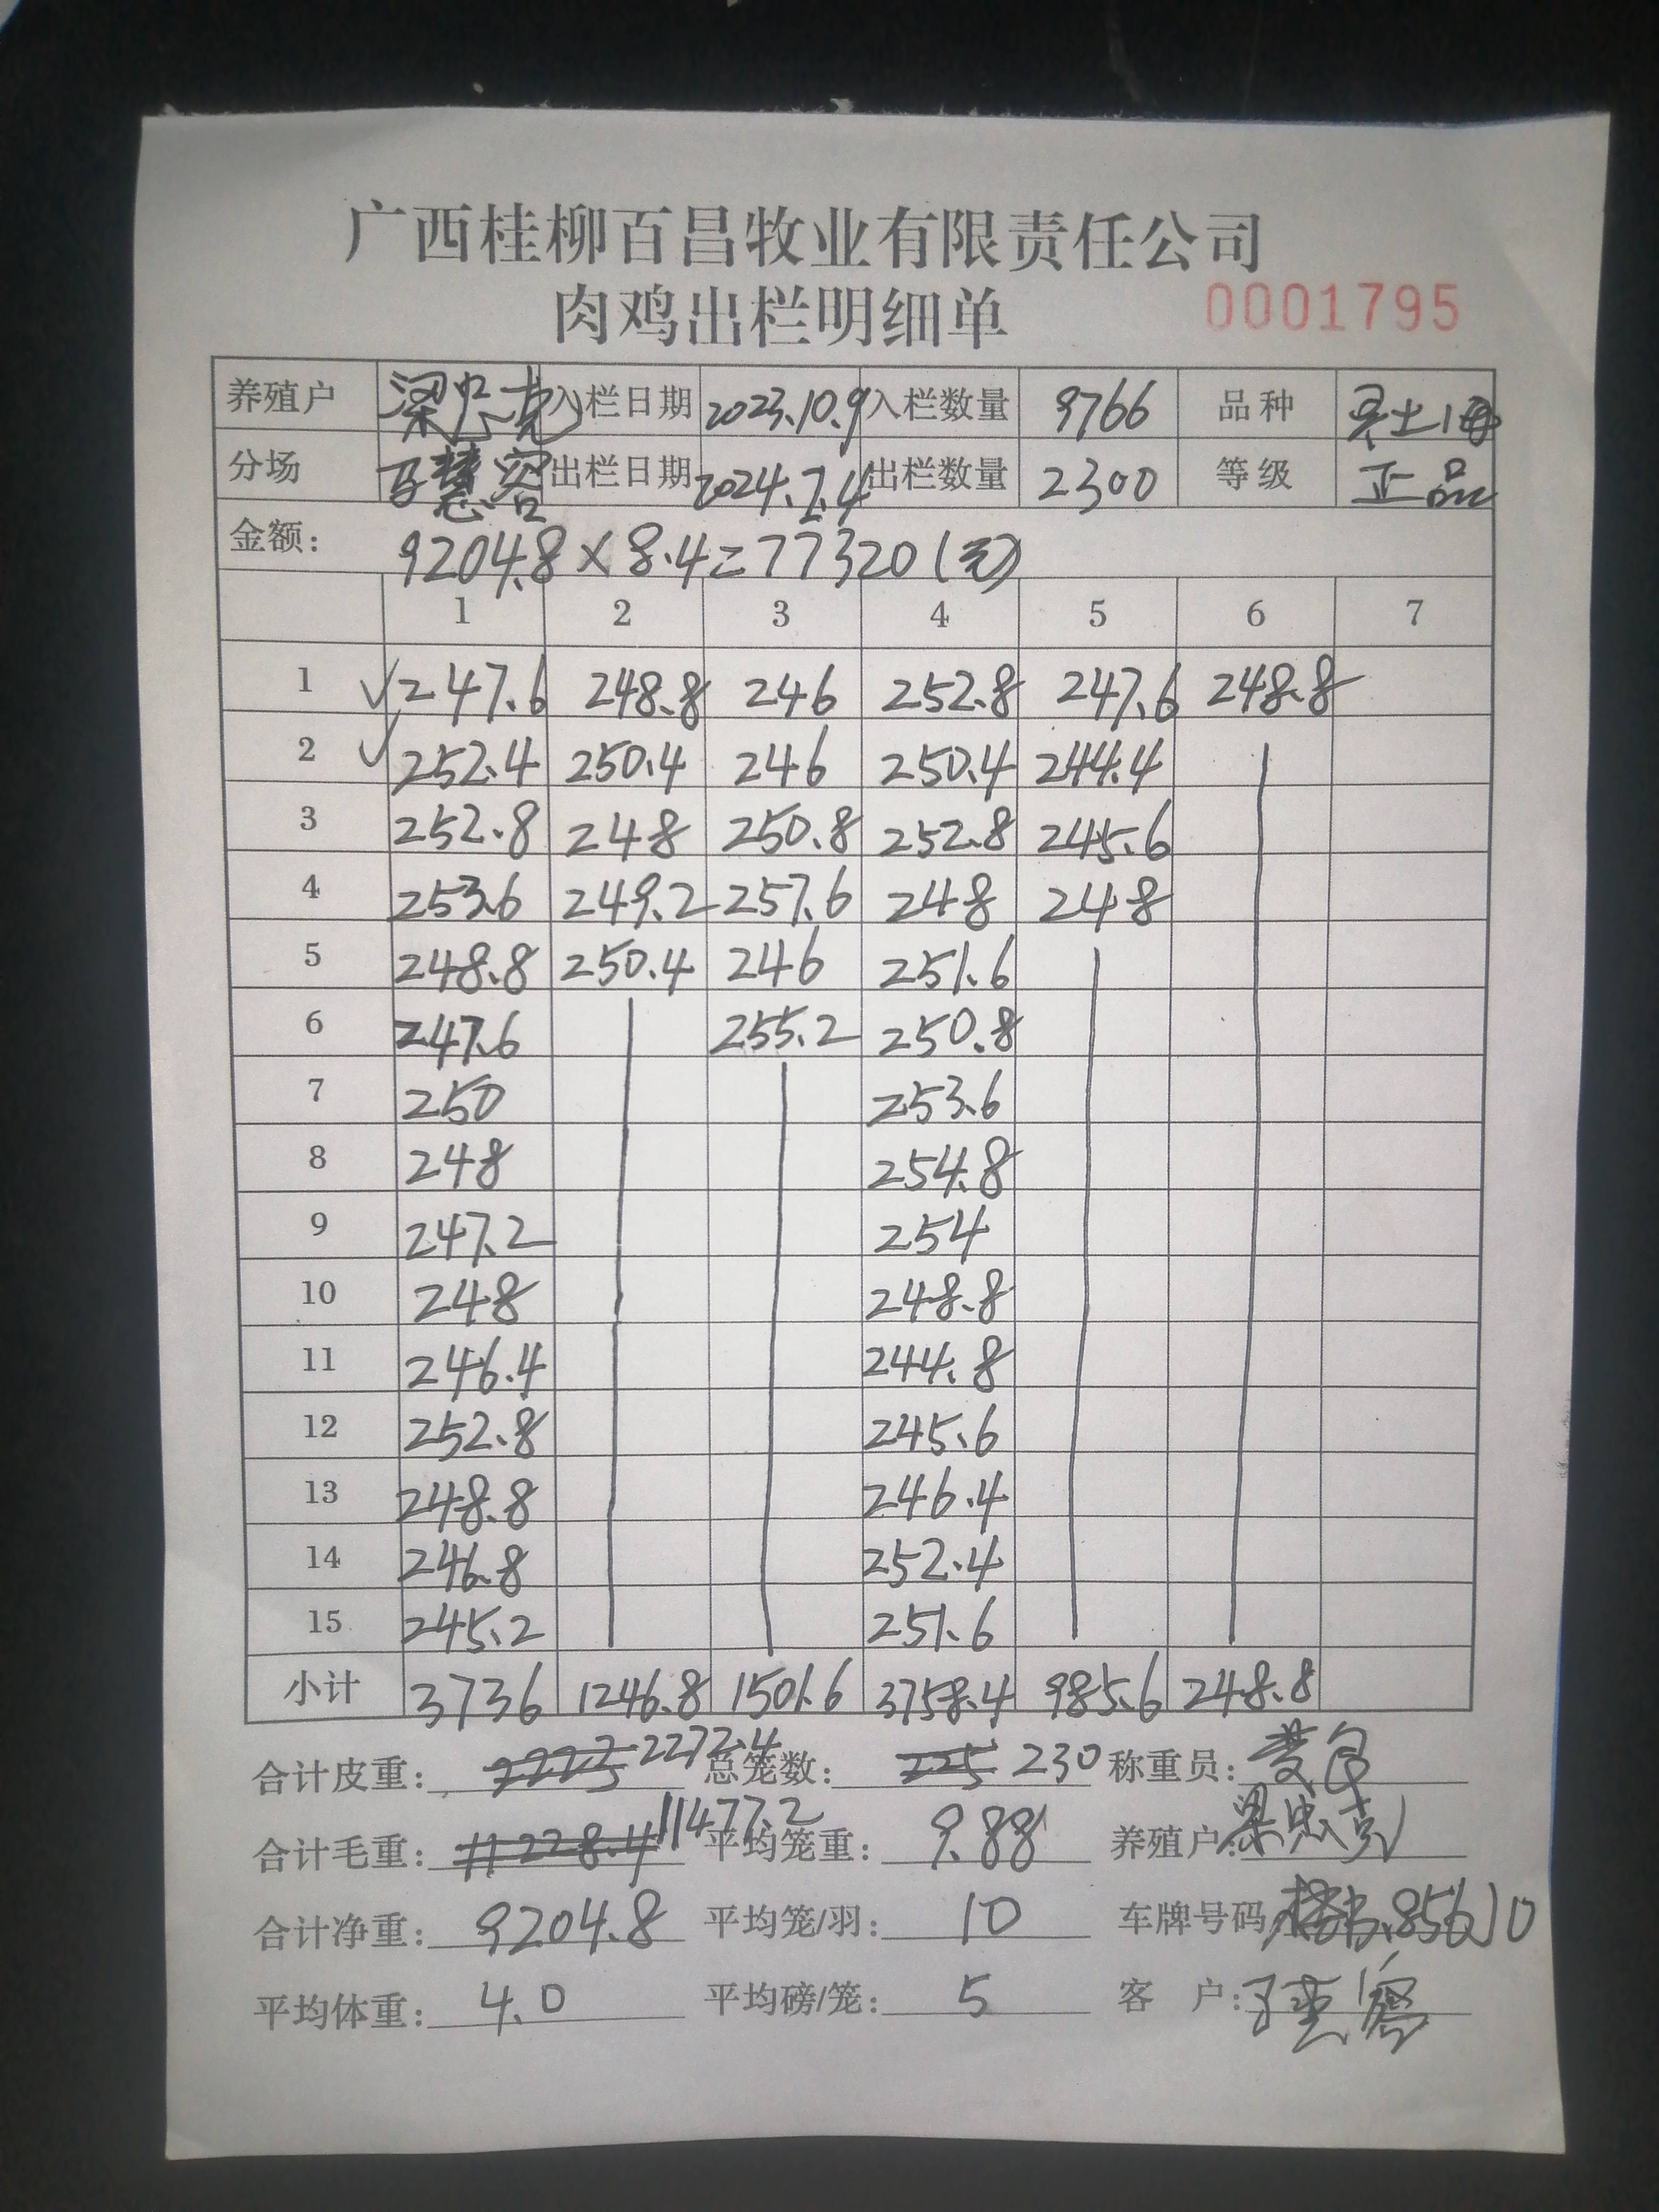 广西桂柳百昌牧业有限责任公司
肉鸡出栏明细单 0001795
养殖户 梁忠克 入栏日期 2023.10.9 入栏数量 9766 品种
分场 出栏日期 2024.2.4 出栏数量 2300 等级 正品
金额: 9204.8×8.4=77320(元)
1 2 3 4 5 6 7
1 √247.6 248.8 246 252.8 247.6 248.8
2 √252.4 250.4 246 250.4 244.4
3 252.8 248 250.8 252.8 245.6
4 253.6 249.2 257.6 248 248
5 248.8 250.4 246 251.6
6 247.6 255.2 250.8
7 250 253.6
8 248 254.8
9 247.2 254
10 248 248.8
11 246.4 244.8
12 252.8 245.6
13 248.8 246.4
14 246.8 252.4
15 245.2 251.6
小计 3736 1246.8 1501.6 3758.4 985.6 248.8
合计皮重: 2272.4 总笼数: 225 230 称重员:
合计毛重: 11228.4 11477.2 平均笼重: 9.88 养殖户: 梁忠克
合计净重: 9204.8 平均笼/羽: 10 车牌号码:
平均体重: 4.0 平均磅/笼: 5 客 户: